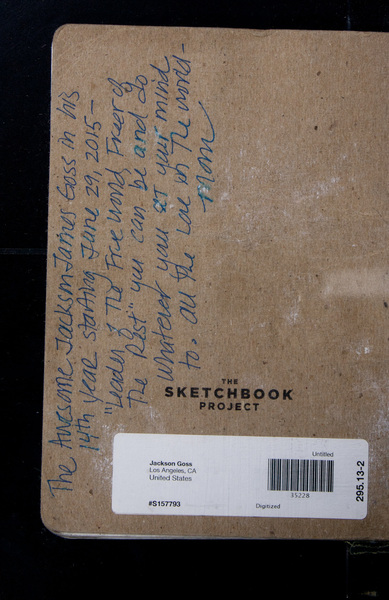 The Awesome Jackson James Goss in his
14th year starting June 29, 2015 —
"Leader of The Free World Freer of
The Rest" you can be and do
whatever you set your mind
to. All the love in the world -
Mom
THE
SKETCHBOOK
PROJECT
Untitled
Jackson Goss
Los Angeles, CA
United States
35228
#S157793
Digitized
295.13-2